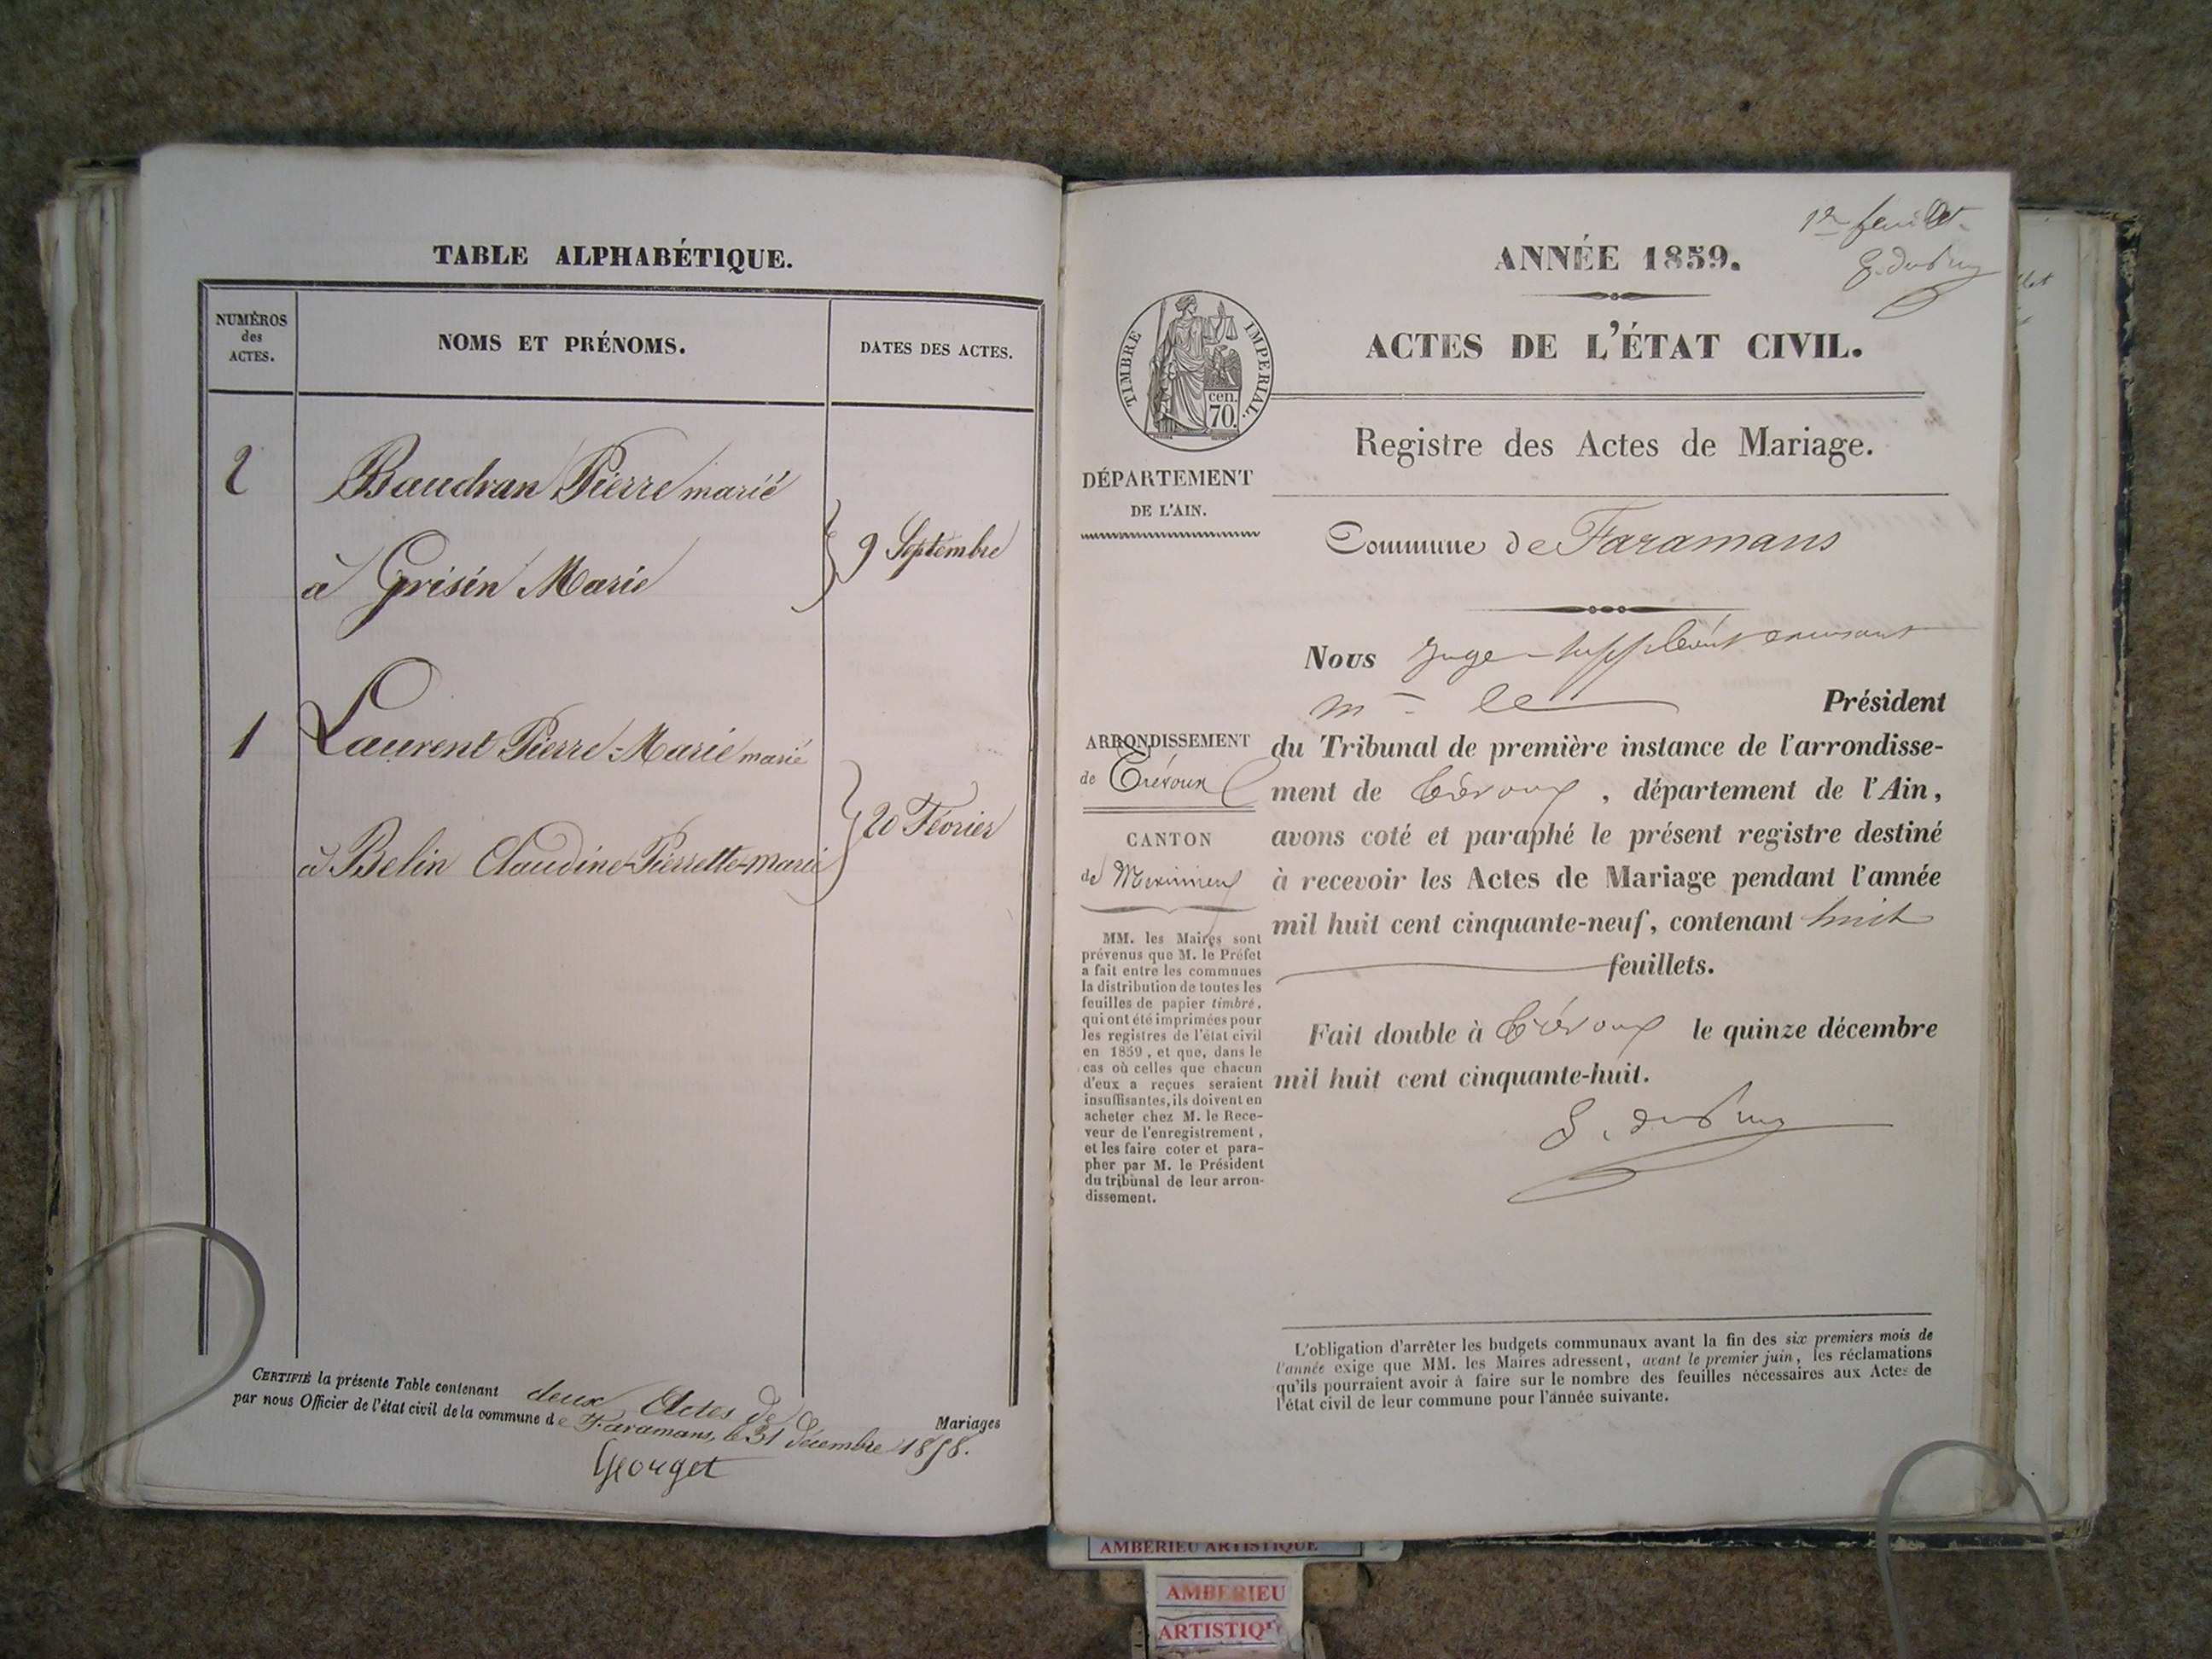 TABLE ALPHABÉTIQUE.
NUMÉROS
des
ACTES.
NOMS ET PRÉNOMS.
DATES DES ACTES.
2 Baudran Pierre marié
à Grisin Marie
9 Septembre
1 Laurent Pierre-Marie marié
à Belin Claudine-Pierrette-marié
20 Février
CERTIFIÉ la présente Table contenant deux Actes de Mariages
par nous Officier de l'état civil de la commune de Faramans, le 31 Décembre 1858.
Georget
1er feuillet
ANNÉE 1859.
ACTES DE L'ÉTAT CIVIL.
TIMBRE IMPERIAL.
cen.
70.
Registre des Actes de Mariage.
DÉPARTEMENT
DE L'AIN.
Commune de Faramans
Nous Juge suppléant
Mr le Président
ARRONDISSEMENT
de Trévoux
CANTON
de Meximieux
du Tribunal de première instance de l'arrondisse-
ment de Trévoux, département de l'Ain,
avons coté et paraphé le présent registre destiné
à recevoir les Actes de Mariage pendant l'année
mil huit cent cinquante-neuf, contenant huit
feuillets.
MM. les Maires sont
prévenus que M. le Préfet
a fait entre les communes
la distribution de toutes les
feuilles de papier timbré,
qui ont été imprimées pour
les registres de l'état civil
en 1859, et que, dans le
cas où celles que chacun
d'eux a reçues seraient
insuffisantes, ils doivent en
acheter chez M. le Rece-
veur de l'enregistrement,
et les faire coter et para-
pher par M. le Président
du tribunal de leur arron-
dissement.
Fait double à Trévoux le quinze décembre
mil huit cent cinquante-huit.
L'obligation d'arrêter les budgets communaux avant la fin des six premiers mois de
l'année exige que MM. les Maires adressent, avant le premier juin, les réclamations
qu'ils pourraient avoir à faire sur le nombre des feuilles nécessaires aux Actes de
l'état civil de leur commune pour l'année suivante.
AMBERIEU ARTISTIQUE
AMBERIEU
ARTISTIQUE